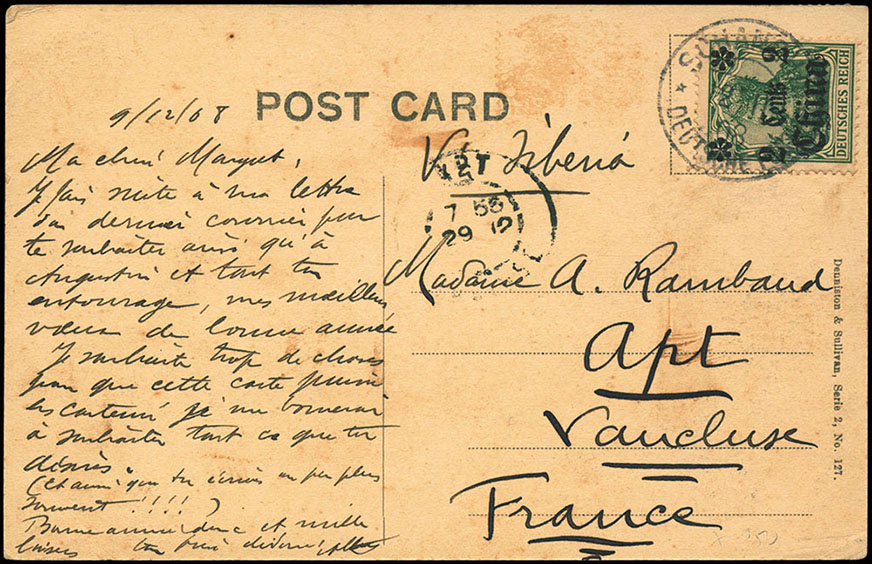 POST CARD
9/12/08
Ma chère Margot,
Je fais suite à ma lettre
du dernier courrier pour
te souhaiter ainsi qu'à
Augustin et tout ton
entourage, mes meilleurs
vœux de bonne année
Je souhaite trop de choses
pour que cette carte puisse
les contenir je me bornerai
à souhaiter tout ce que tu
désires
(Et aussi que tu écrives un peu plus
souvent !!!! )
Bonne année donc et mille
baisers
Via Siberia
Madame A. Rambaud
Apt
Vaucluse
France
DEUTSCHES REICH
2 Cents 2
China
DEUTSCHE
APT
7 55
29 12
Denniston & Sullivan, Serie 2, No. 127.